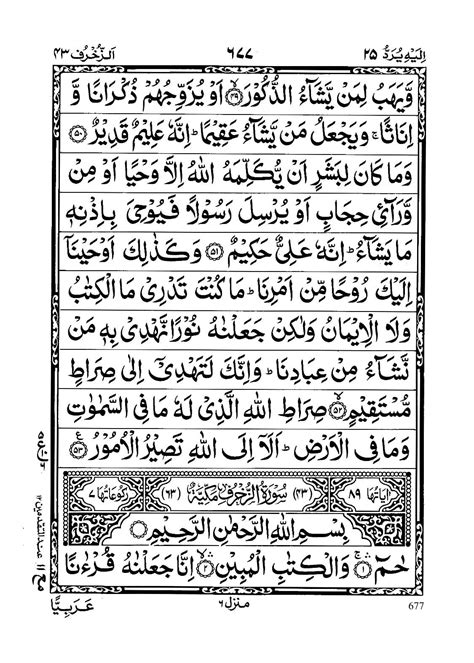 اِلَيْهِ يُرَدُّ ٢٥
٦٧٧
اَلزُّخْرُف ٤٣
وَّيَهَبُ لِمَنْ يَّشَآءُ الذُّكُوْرَ ۙ‏﴿۴۹﴾ اَوْ يُزَوِّجُهُمْ ذُكْرَانًا وَّ
اِنَاثًا ۚ وَيَجْعَلُ مَنْ يَّشَآءُ عَقِيْمًا ؕ اِنَّهٗ عَلِيْمٌ قَدِيْرٌ ﴿۵۰﴾
وَمَا كَانَ لِبَشَرٍ اَنْ يُّكَلِّمَهُ اللّٰهُ اِلَّا وَحْيًا اَوْ مِنْ
وَّرَآئِ حِجَابٍ اَوْ يُرْسِلَ رَسُوْلًا فَيُوْحِيَ بِاِذْنِهٖ
مَا يَشَآءُ ؕ اِنَّهٗ عَلِيٌّ حَكِيْمٌ ﴿۵۱﴾ وَكَذٰلِكَ اَوْحَيْنَاۤ
اِلَيْكَ رُوْحًا مِّنْ اَمْرِنَا ؕ مَا كُنْتَ تَدْرِيْ مَا الْكِتٰبُ
وَلَا الْاِيْمَانُ وَلٰكِنْ جَعَلْنٰهُ نُوْرًا نَّهْدِيْ بِهٖ مَنْ
نَّشَآءُ مِنْ عِبَادِنَا ؕ وَاِنَّكَ لَتَهْدِيْۤ اِلٰى صِرَاطٍ
مُّسْتَقِيْمٍ ۙ‏﴿۵۲﴾ صِرَاطِ اللّٰهِ الَّذِيْ لَهٗ مَا فِي السَّمٰوٰتِ
وَمَا فِي الْاَرْضِ ؕ اَلَاۤ اِلَى اللّٰهِ تَصِيْرُ الْاُمُوْرُ ﴿۵۳﴾ ع
اٰيَاتُهَا ٨٩
(٤٣) سُوْرَةُ الزُّخْرُفِ مَكِّيَّةٌ (٦٣)
رُكُوْعَاتُهَا ٧
بِسْمِ اللّٰهِ الرَّحْمٰنِ الرَّحِيْمِ
حٰمٓ ۚۛ ﴿۱﴾ وَالْكِتٰبِ الْمُبِيْنِ ۙۛ ﴿۲﴾ اِنَّا جَعَلْنٰهُ قُرْءٰنًا
عَرَبِيًّا
منزل ٦
677